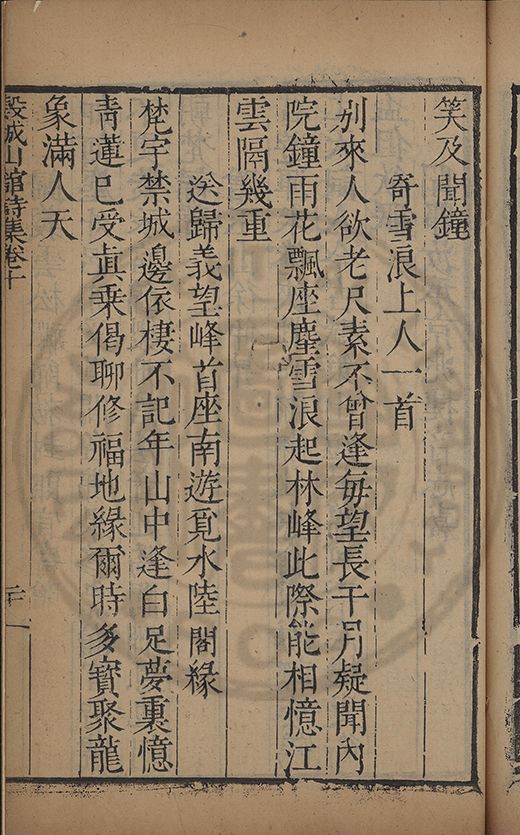 笑及聞鐘
寄雪浪上人一首
別來人欲老尺素不曾逢每望長干月疑聞內
院鐘雨花飄座塵雪浪起林峰此際能相憶江
雲隔幾重
送歸義望峰首座南遊覔水陸閣緣
梵宇禁城邊依棲不記年山中逢白足夢裏憶
靑蓮已受眞乗偈聊修福地緣爾時多寳聚龍
象滿人天
穀城山館詩集卷十
二十一